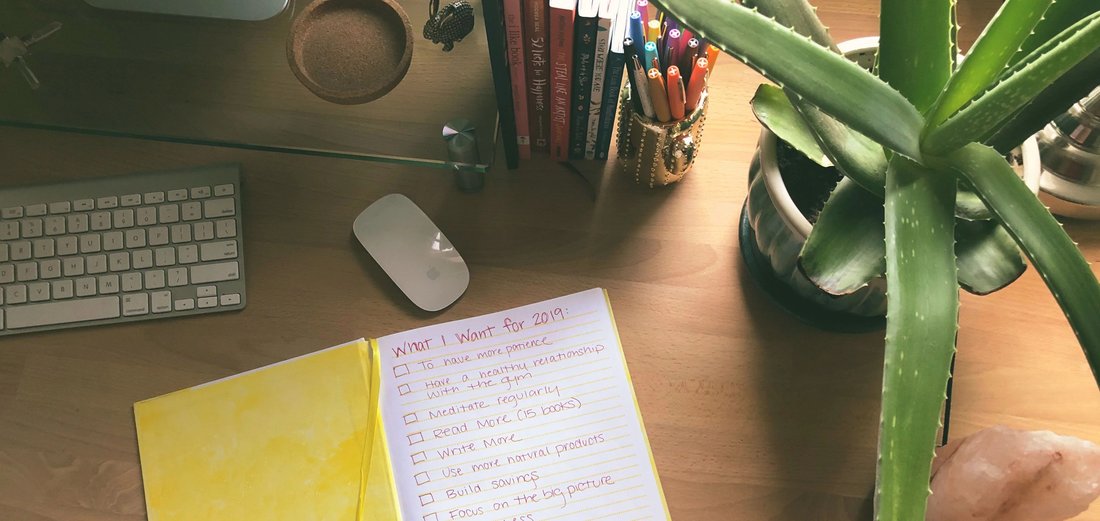 like book
52 Lists for Happiness
STEAL LIKE AN ARTIST
What I Want for 2019:
To have more patience
Have a healthy relationship
with the gym
Meditate regularly
Read More (15 books)
Write More
Use more natural products
Build savings
Focus on the big picture